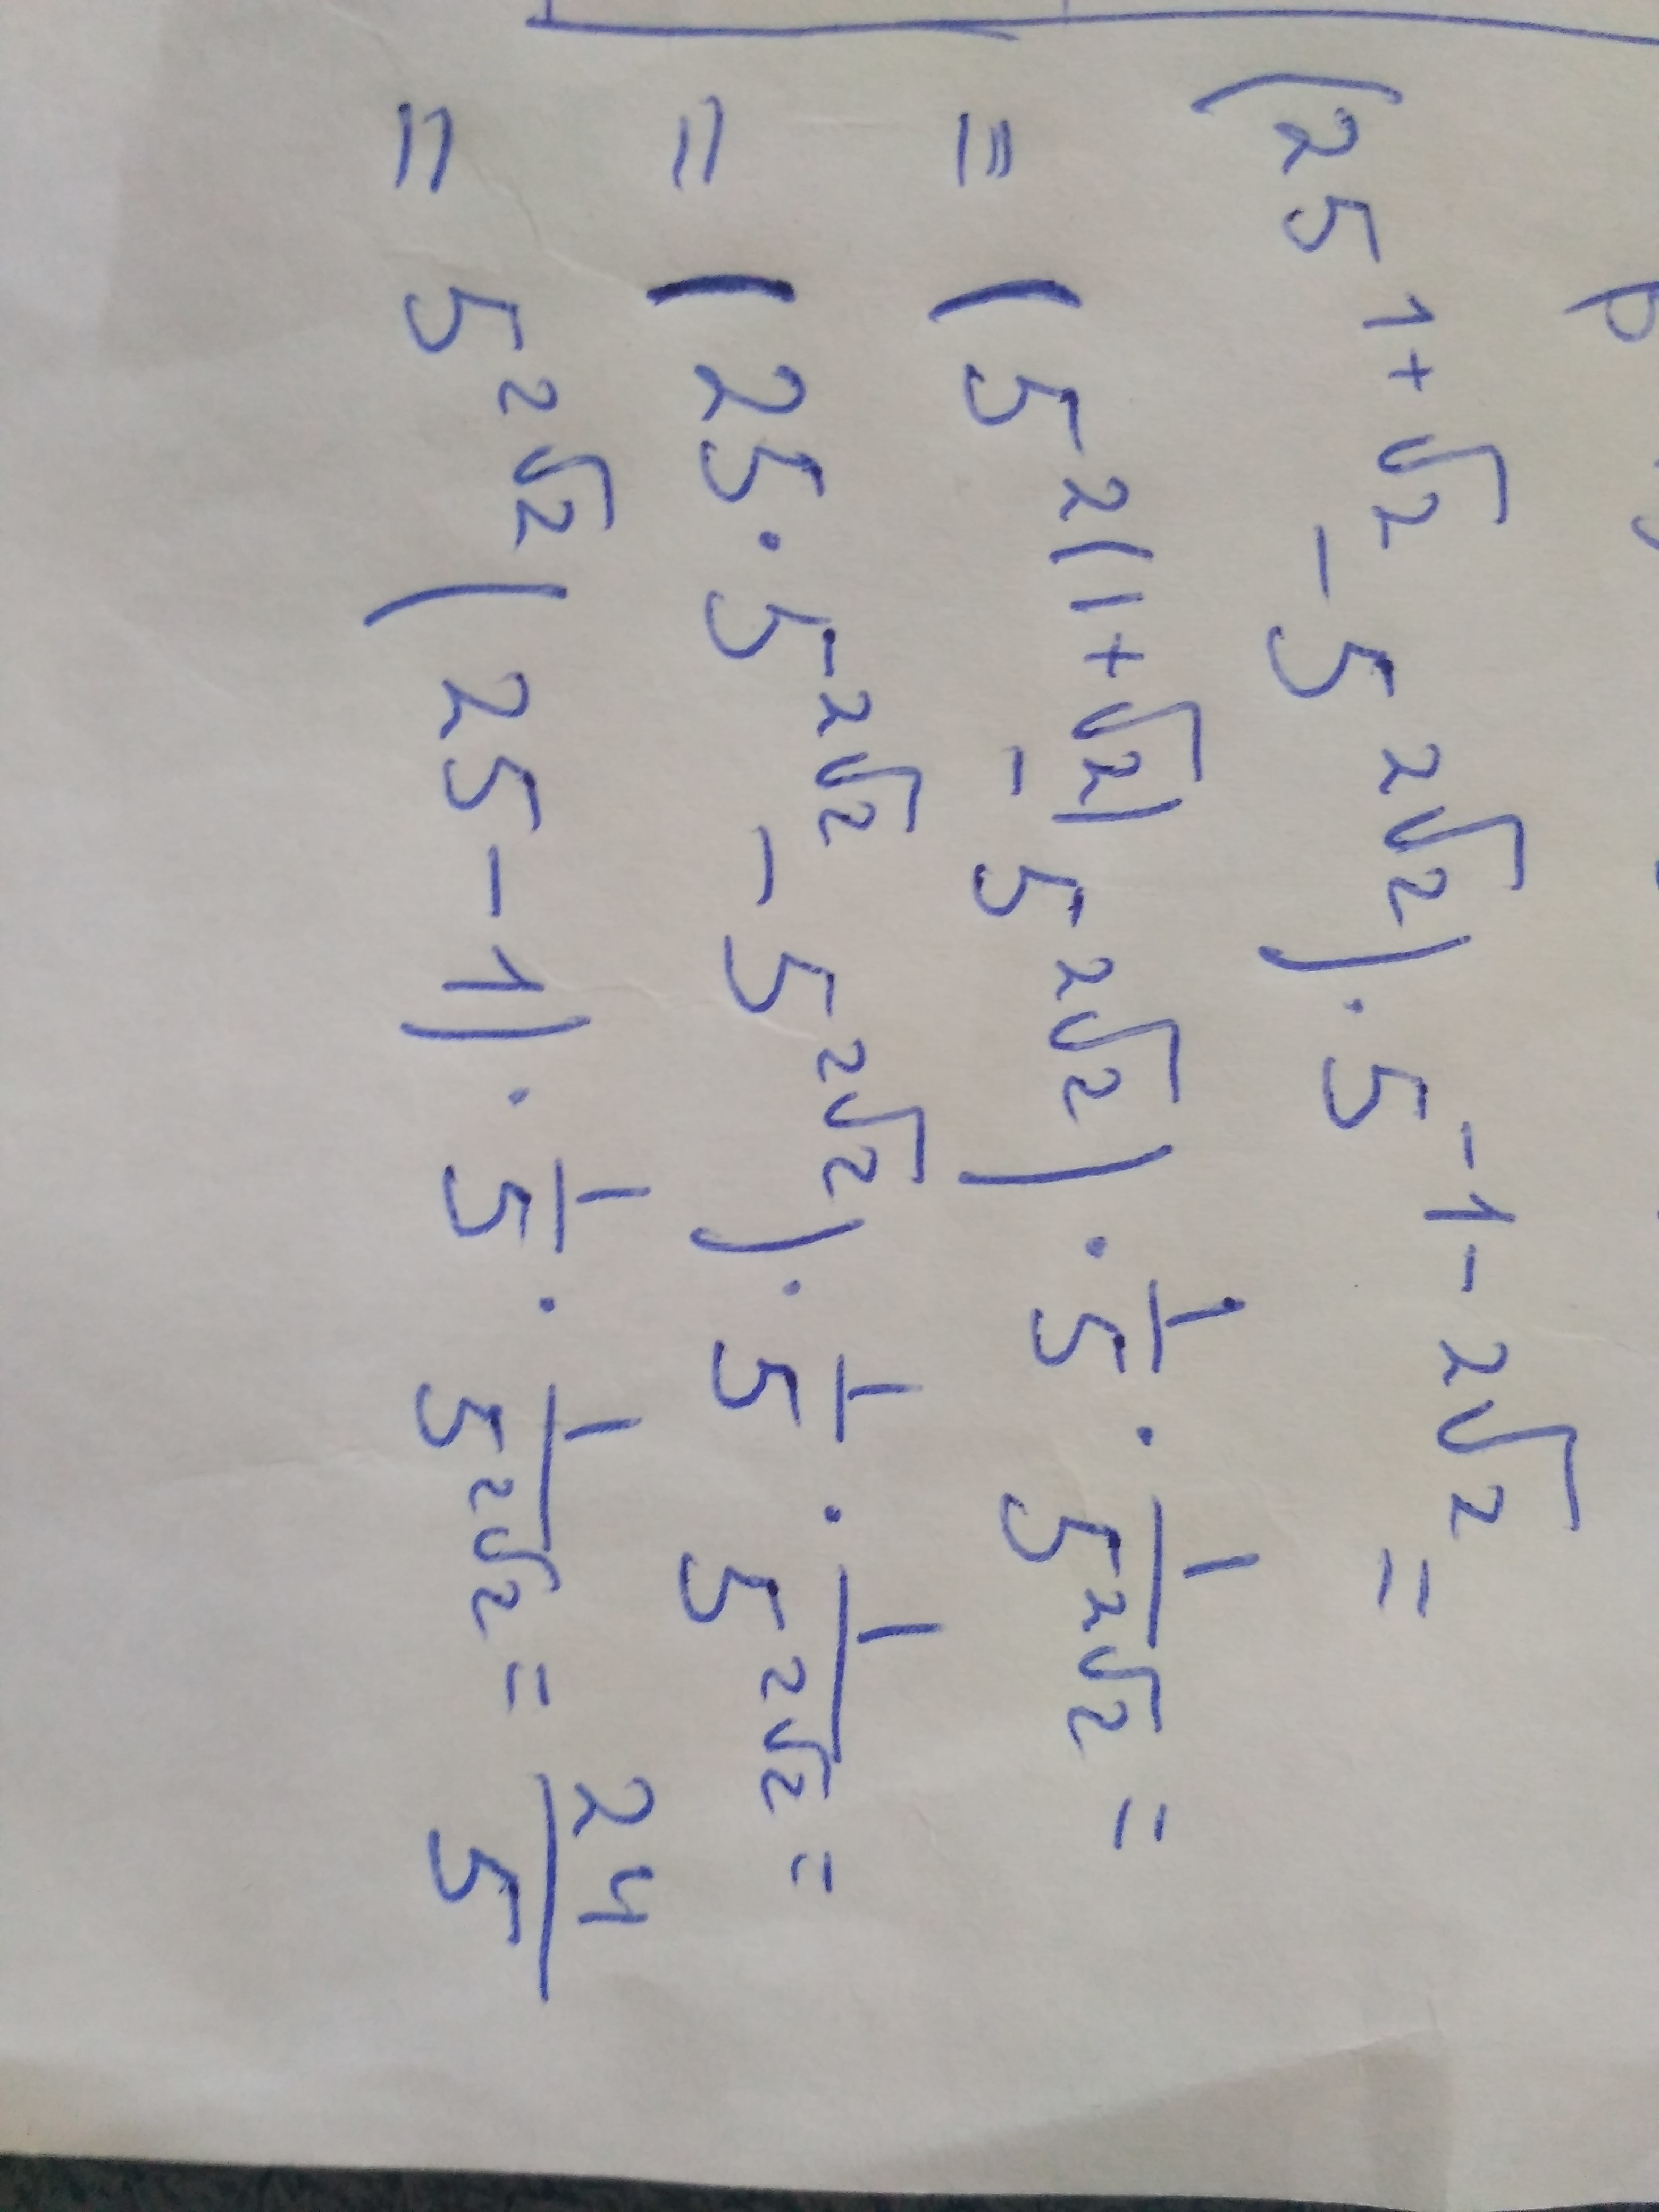 (25^{1+√2} - 5^{2√2}) · 5^{-1-2√2} =
= (5^{2(1+√2)} - 5^{2√2}) · 1/5 · 1/5^{2√2} =
= (25 · 5^{2√2} - 5^{2√2}) · 1/5 · 1/5^{2√2} =
= 5^{2√2} (25 - 1) · 1/5 · 1/5^{2√2} = 24/5